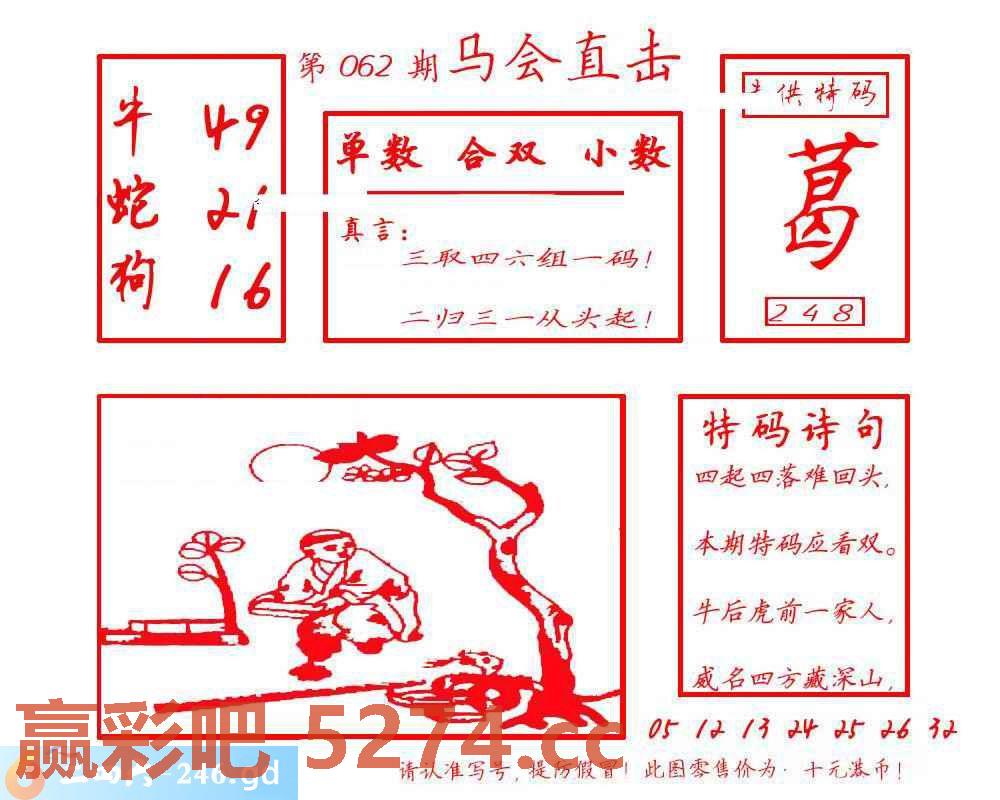 第 062 期 马会直击
牛 49
蛇 21
狗 16
单数 合双 小数
真言：
三取四六组一码！
二归三一从头起！
供特码
葛
248
特码诗句
四起四落难回头，
本期特码应看双。
牛后虎前一家人，
威名四方藏深山，
05 12 13 24 25 26 32
赢彩吧 5274.cc
-246.gd
请认准写号，提防假冒！此图零售价为·十元港币！